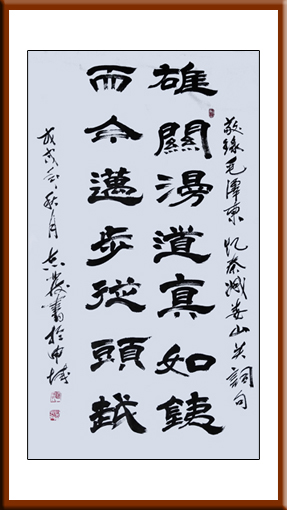 敬録毛澤東忆秦娥娄山关詞句
雄關漫道真如鐵
而今邁步從頭越
戊戌年秋月書於申城